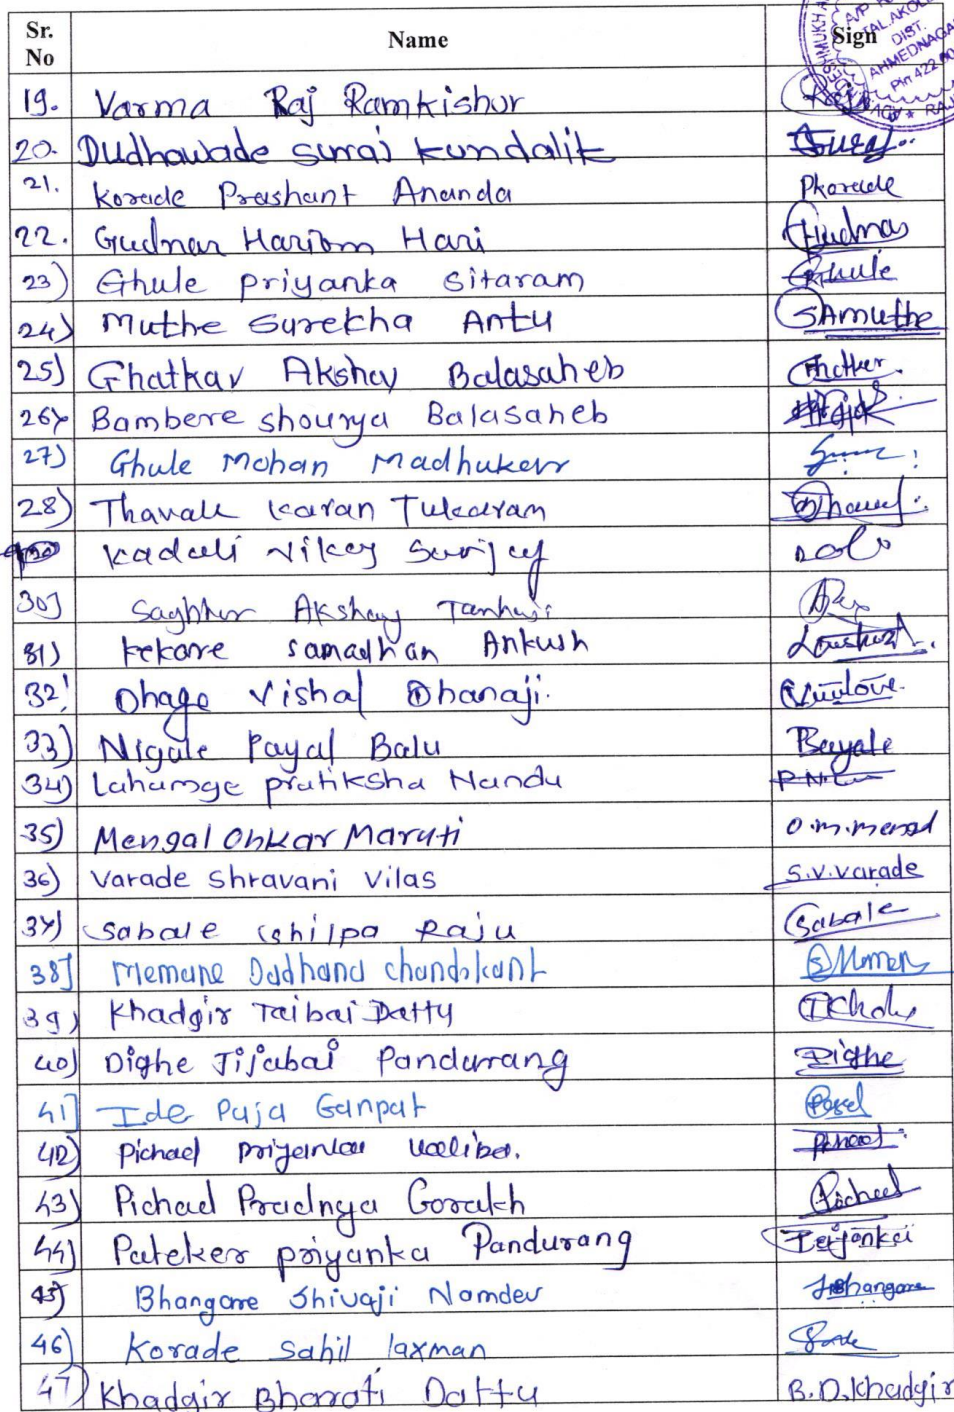 Sr. No Name Sign
A/P
TAL. AKOLE
DIST.
AHMEDNAGAR
Pin 422
19. Varma Raj Ramkishur
20. Dudhawade suraj kundalik Suraj
21. Korade Prashant Ananda Pkorade
22. Gudnar Hariom Hari Gudnar
23) Ghule Priyanka Sitaram Ghule
24) Muthe Surekha Antu SAmuthe
25) Ghatkar Akshay Balasaheb Ghatkar
26) Bambere shourya Balasaheb
27) Ghule Mohan Madhuker
28) Thavale karan Tukaram
kadali Vikey
30) Akshay Tanhaji
31) kekare samadhan Ankush
32) Dhage Vishal Dhanaji.
33) Nigale Payal Balu
34) Lahamge pratiksha Nandu
35) Mengal Onkar Maruti
36) Varade Shravani Vilas S.V.varade
37) Sabale Shilpa Raju Sabale
38] Memane Chandrakant
39) Khadgir Taibai Dattu
40) Dighe Jijabai Pandurang Dighe
41] Ide Puja Ganpat
42) Pichad Priyanka
43) Pichad Pradnya Gorakh Pichad
44) Pateker priyanka Pandurang
45) Bhangare Shivaji Namdev
46) Korade Sahil laxman
47) Khadgir Bharati Dattu B.D.Khadgir